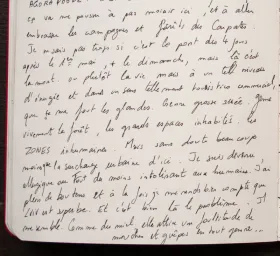 AGORA
ça va me pousser à pas moisir ici, et à aller
embrasser les campagnes et forêts des Carpates.
Je sais pas trop si c'est le pont des 4 jours
après le 1er mai, + le dimanche, mais là c'est
la mort. Ou plutôt la vie, mais à un tel niveau
d'énergie et dans un sens tellement touristico commercial,
que je me fous les glandes. Genre grosse suée.
vivement la forêt, les grands espaces inhabités, les
ZONES interhumaines. Mais sans doute beaucoup
moins que la surcharge urbaine d'ici. Je suis devenu
allergique ou tout du moins intolérant aux humains. J'ai
plein de boutons et à la fois je me rends bien compte que
l'Est superbe. Et c'est bien là le problème. Il
me semble. Comme du miel, elle attire une foultitude de
mouches et guêpes en tout genre...